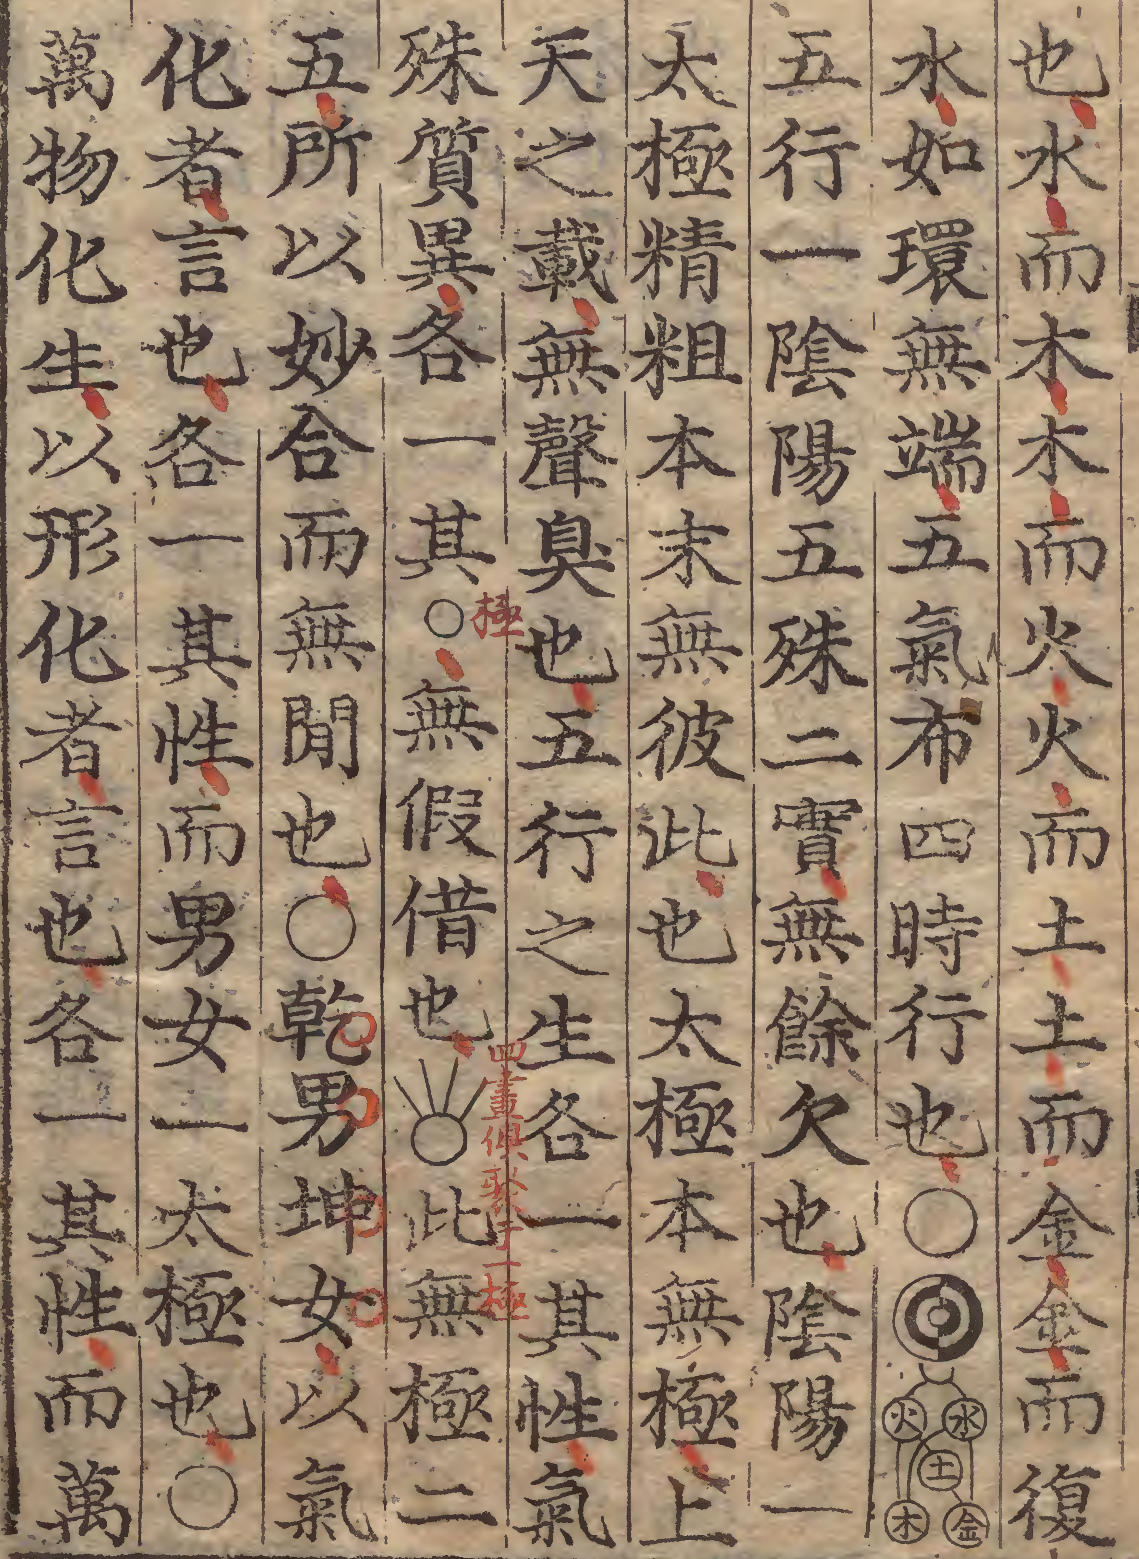 也水而木木而火火而土土而金金而復
水如環無端五氣布四時行也○
火水土木金
五行一陰陽五殊二實無餘欠也陰陽一
太極精粗本末無彼此也太極本無極上
天之載無聲臭也五行之生各一其性氣
殊質異各一其○無假借也此無極二
極
四畫俱聚于一極
五所以妙合而無閒也○乾男坤女以氣
化者言也各一其性而男女一太極也○
萬物化生以形化者言也各一其性而萬